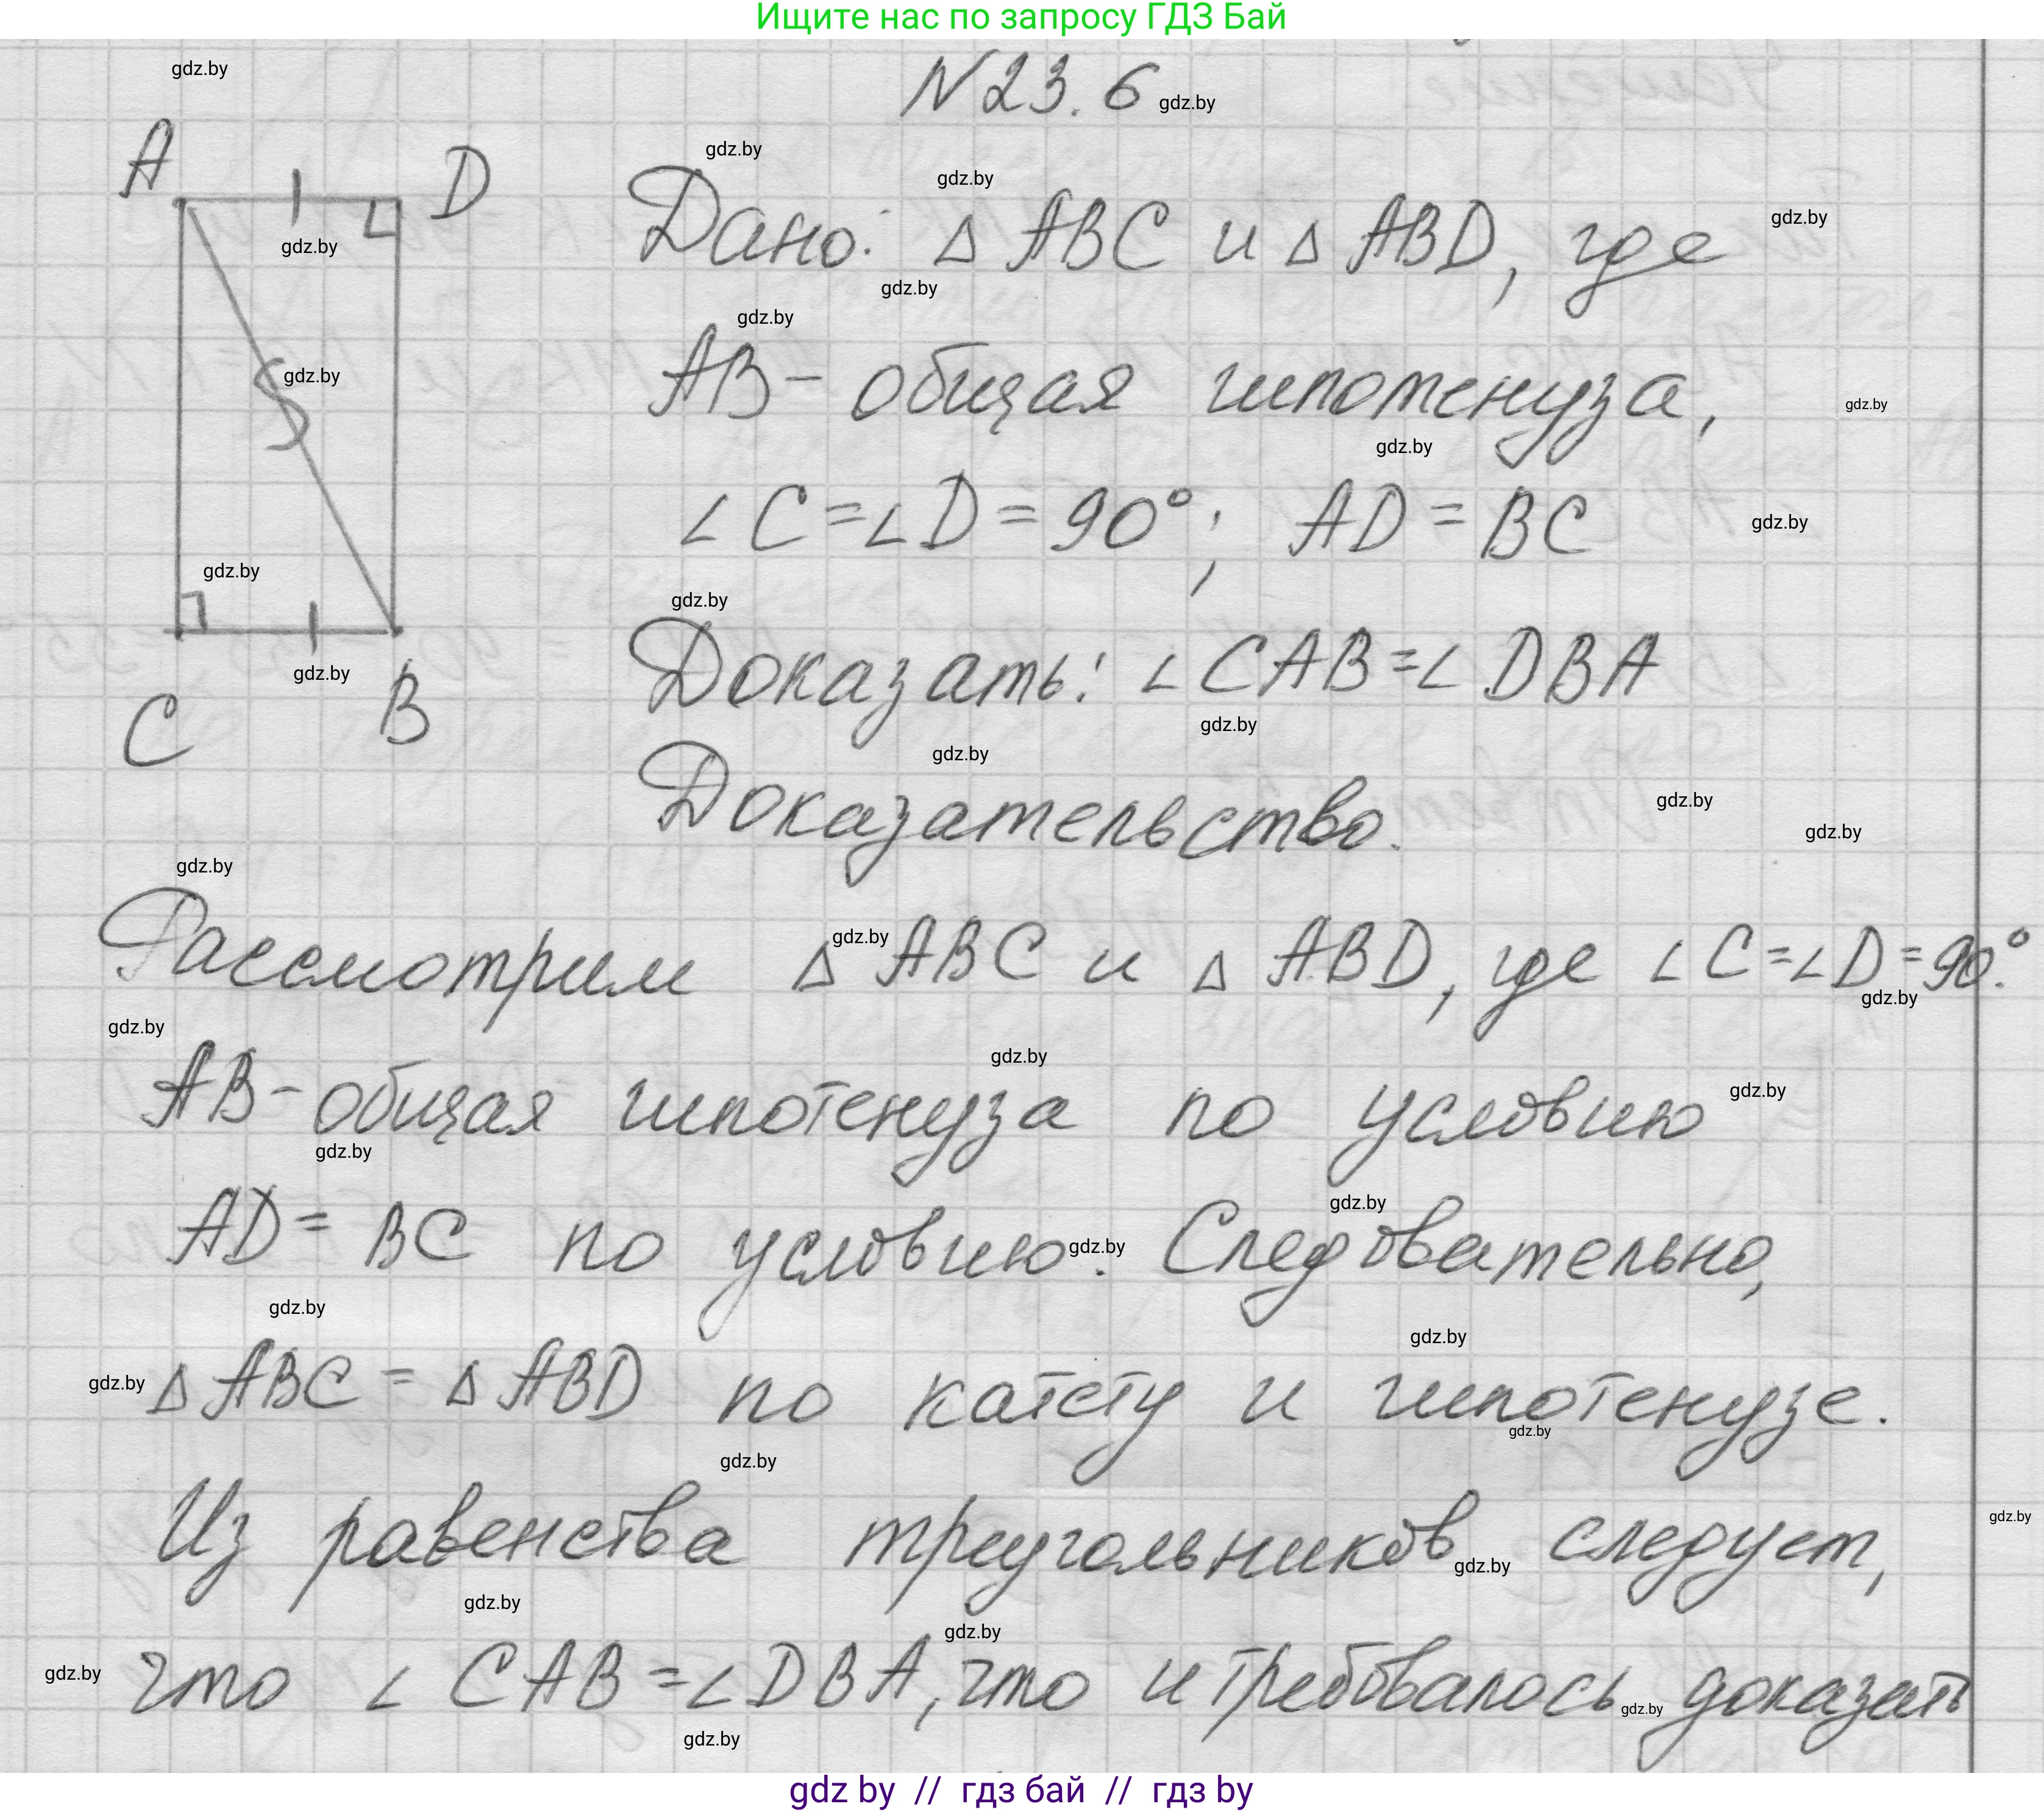 Ищите нас по запросу ГДЗ Бай
N23.6
A
D
C
B
Дано: Δ ABC и Δ ABD, где
AB - общая гипотенуза,
∠C=∠D=90°; AD=BC
Доказать: ∠CAB=∠DBA
Доказательство.
Рассмотрим Δ ABC и Δ ABD, где ∠C=∠D=90°.
AB-общая гипотенуза по условию
AD=BC по условию. Следовательно,
Δ ABC = Δ ABD по катету и гипотенузе.
Из равенства треугольников следует,
что ∠CAB=∠DBA, что и требовалось доказать
gdz by // гдз бай // гдз by